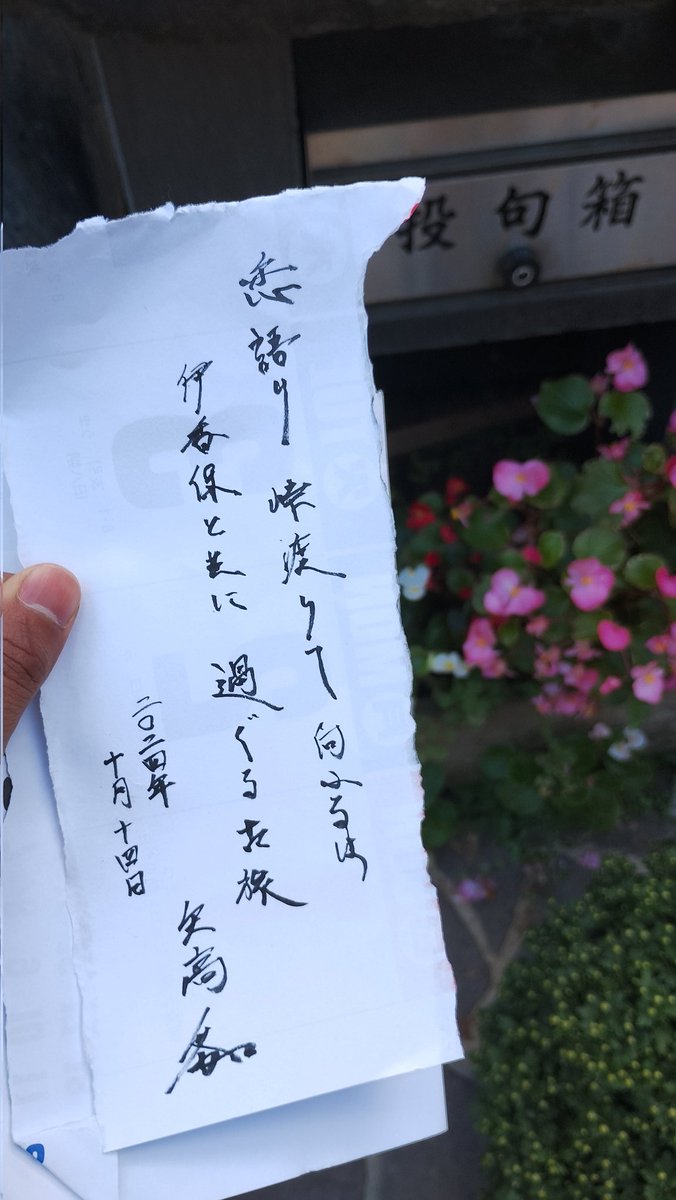 投句箱
恋語り 峠渡りて 向ふるは
伊香保と共に 過ぐる 旅
二〇二四年
十月十四日
高